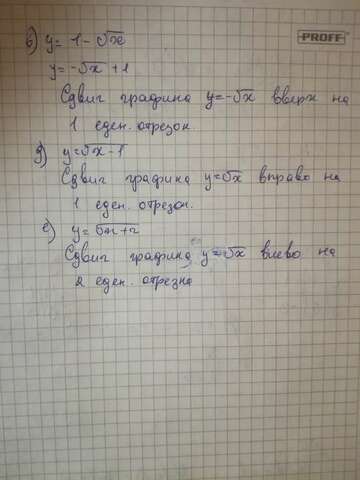 PROFF
в) y= 1-√x
y=-√x +1
Сдвиг графика y=-√x вверх на
1 един. отрезок.
д) y=√x-1
Сдвиг графика y=√x вправо на
1 един. отрезок.
е) y=√x+2
Сдвиг графика y=√x влево на
2 един. отрезка